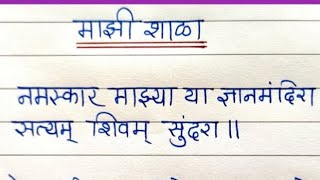 माझी शाळा
नमस्कार माझ्या या ज्ञानमंदिरा
सत्यम् शिवम् सुंदरा ॥